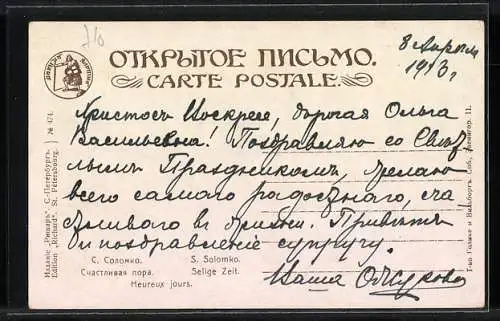 8 Апреля
1913 г.
ОТКРЫТОЕ ПИСЬМО.
CARTE POSTALE.
Христосъ Воскресе, дорогая Ольга
Васильевна! Поздравляю со Свѣт
лымъ Праздникомъ, желаю
всего самаго радостнаго, сча
стливаго въ жизни. Привѣтъ
и поздравленіе супругу.
С. Соломко.
Счастливая пора.
S. Solomko.
Selige Zeit.
Heureux jours.
Изданіе „Ришаръ“ С.-Петербургъ.
Edition „Richard“. St. Pétersbourg.
№ 474.
Т-во Голике и Вильборгъ. Спб., Звенигор. 11.